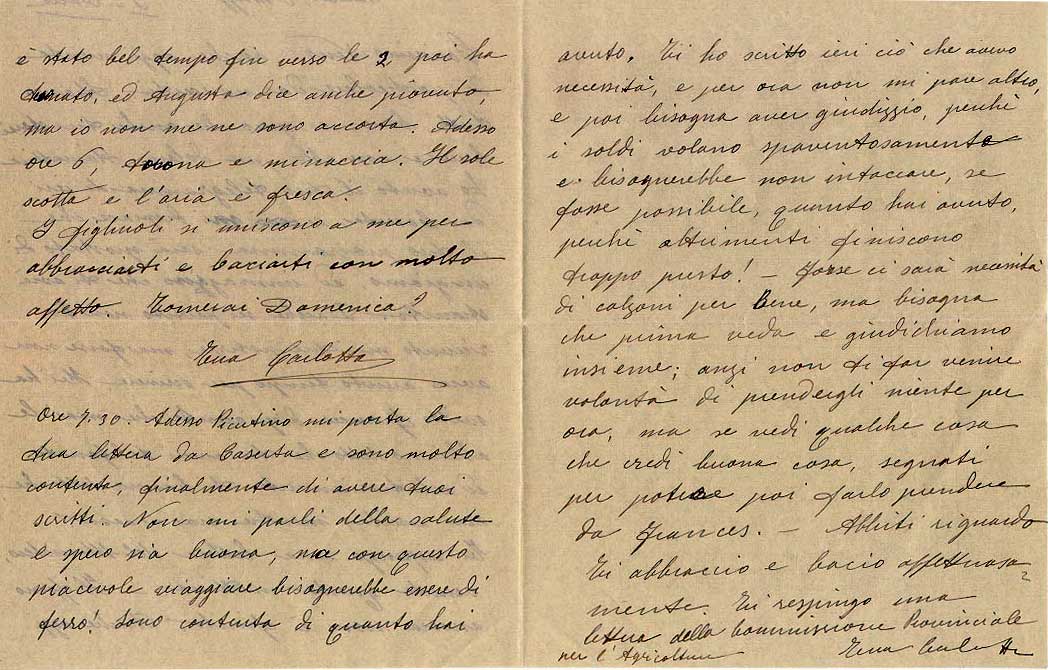 è stato bel tempo fin verso le 2 poi ha
tonato, ed Augusta dice anche piovuto,
ma io non me ne sono accorta. Adesso
ore 6, tuona e minaccia. Il sole
scotta e l'aria è fresca.
I figliuoli si uniscono a me per
abbracciarti e baciarti con molto
affetto. Tornerai Domenica?
Tua Carlotta
Ore 7.30. Adesso mi porta la
tua lettera da Caserta e sono molto
contenta, finalmente di avere tuoi
scritti. Non mi parli della salute
e spero sia buona, ma con questo
piacevole viaggiare bisognerebbe essere di
ferro! Sono contenta di quanto hai
avuto. Ti ho scritto ieri ciò che avevo
necessità, e per ora non mi pare altro,
e poi bisogna aver giudizzio, perchè
i soldi volano spaventosamente
e bisognerebbe non intaccare, se
fosse possibile, quanto hai avuto,
perchè altrimenti finiscono
troppo presto! – Forse ci sarà necessità
di calzoni per Bene, ma bisogna
che prima veda e giudichiamo
insieme; anzi non ti far venire
volontà di prendergli niente per
ora, ma se vedi qualche cosa
che credi buona cosa, segnati
per potere poi farlo prendere
da Frances. – Abbiti riguardo
Ti abbraccio e bacio affettuosa
mente. Ti respingo una
lettera della Commissione Provinciale
per l'Agricoltura
Tua Carlotta